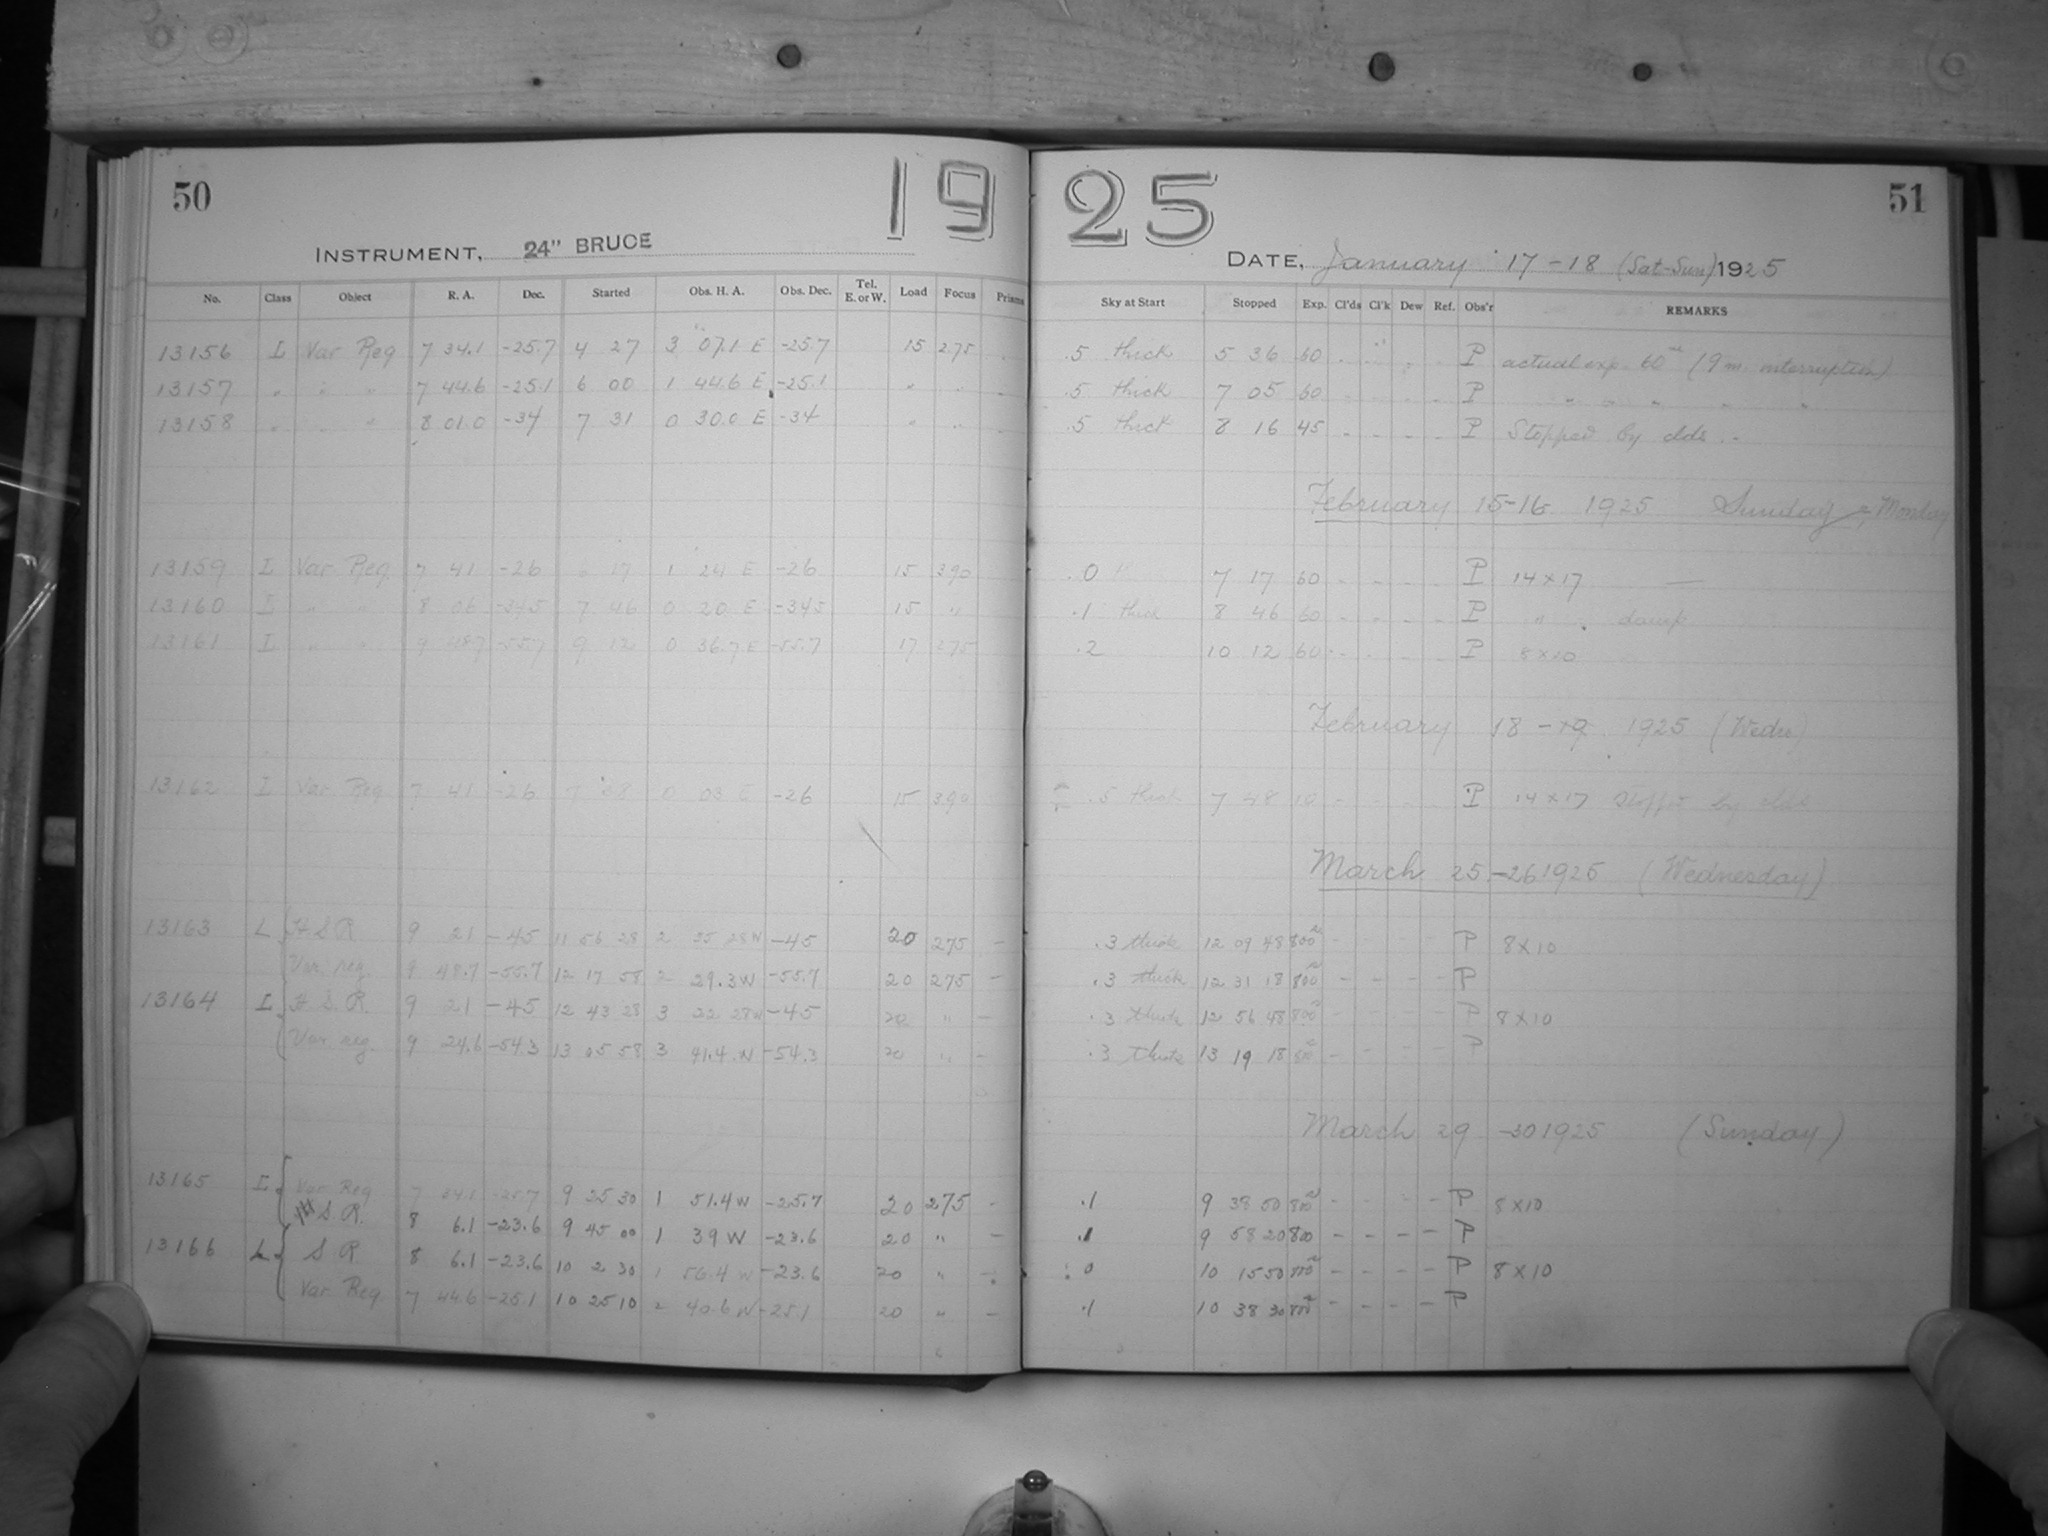 50 19 25 51
INSTRUMENT, 24" BRUCE DATE, January 17-18 (Sat-Sun) 1925
No. Class Object R. A. Dec. Started Obs. H. A. Obs. Dec. Tel. E. or W. Load Focus Prisms Sky at Start Stopped Exp. Cl'ds Cl'k Dew Ref. Obs'r REMARKS
13156 I Var Reg 7 34.1 -25.7 4 27 3 07.1 E -25.7 15 275 .5 thick 5 36 60 P actual exp. 60m (9 m. interruption)
13157 " " " 7 44.6 -25.1 6 00 1 44.6 E -25.1 " " .5 thick 7 05 60 P " " " " "
13158 " " " 8 01.0 -34 7 31 0 30.0 E -34 " " .5 thick 8 16 45 - - - - P Stopped by clds.
February 15-16 1925 Sunday - Monday
13159 I Var Reg 7 41 -26 17 1 24 E -26 15 390 .0 7 17 60 - - - - P 14x17
13160 I " " 8 06 -34.5 7 46 0 20 E -34.5 15 " .1 thick 8 46 60 - - - - P " damp
13161 I " " 9 48.7 -55.7 9 12 0 36.7 E -55.7 17 275 .2 10 12 60 - - - - P 8x10
February 18-19 1925 (Wedn.)
13162 I Var Reg 7 41 -26 7 0 03 E -26 15 390 .5 thick 7 48 10 - - - - P 14x17 stopped by clds
March 25-26 1925 (Wednesday)
13163 L H S R 9 21 -45 11 56 28 2 W -45 20 275 - .3 thick 12 09 48 800s - - - - P 8x10
Var. reg. 9 48.7 -55.7 12 17 58 2 29.3 W -55.7 20 275 - .3 thick 12 31 18 800s - - - - P
13164 I H S R. 9 21 -45 12 43 28 3 22 28 W -45 20 " - .3 thick 12 56 48 800s - - - - P 8x10
Var. reg. 9 24.6 -54.3 13 05 58 3 41.4 W -54.3 20 " - .3 thick 13 19 18 - - - - P
March 29 -30 1925 (Sunday)
13165 I Var Reg 7 34.1 -25.7 9 25 30 1 51.4 W -25.7 20 275 - .1 9 38 50 800s - - - - P 8x10
S R. 8 6.1 -23.6 9 45 00 1 39 W -23.6 20 " - .1 9 58 20 800 - - - - P
13166 L S R 8 6.1 -23.6 10 2 30 1 56.4 W -23.6 20 " - 0 10 15 50 800s - - - - P 8x10
Var Reg. 7 44.6 -25.1 10 25 10 2 40.6 W -25.1 20 " - .1 10 38 30 800s - - - - P